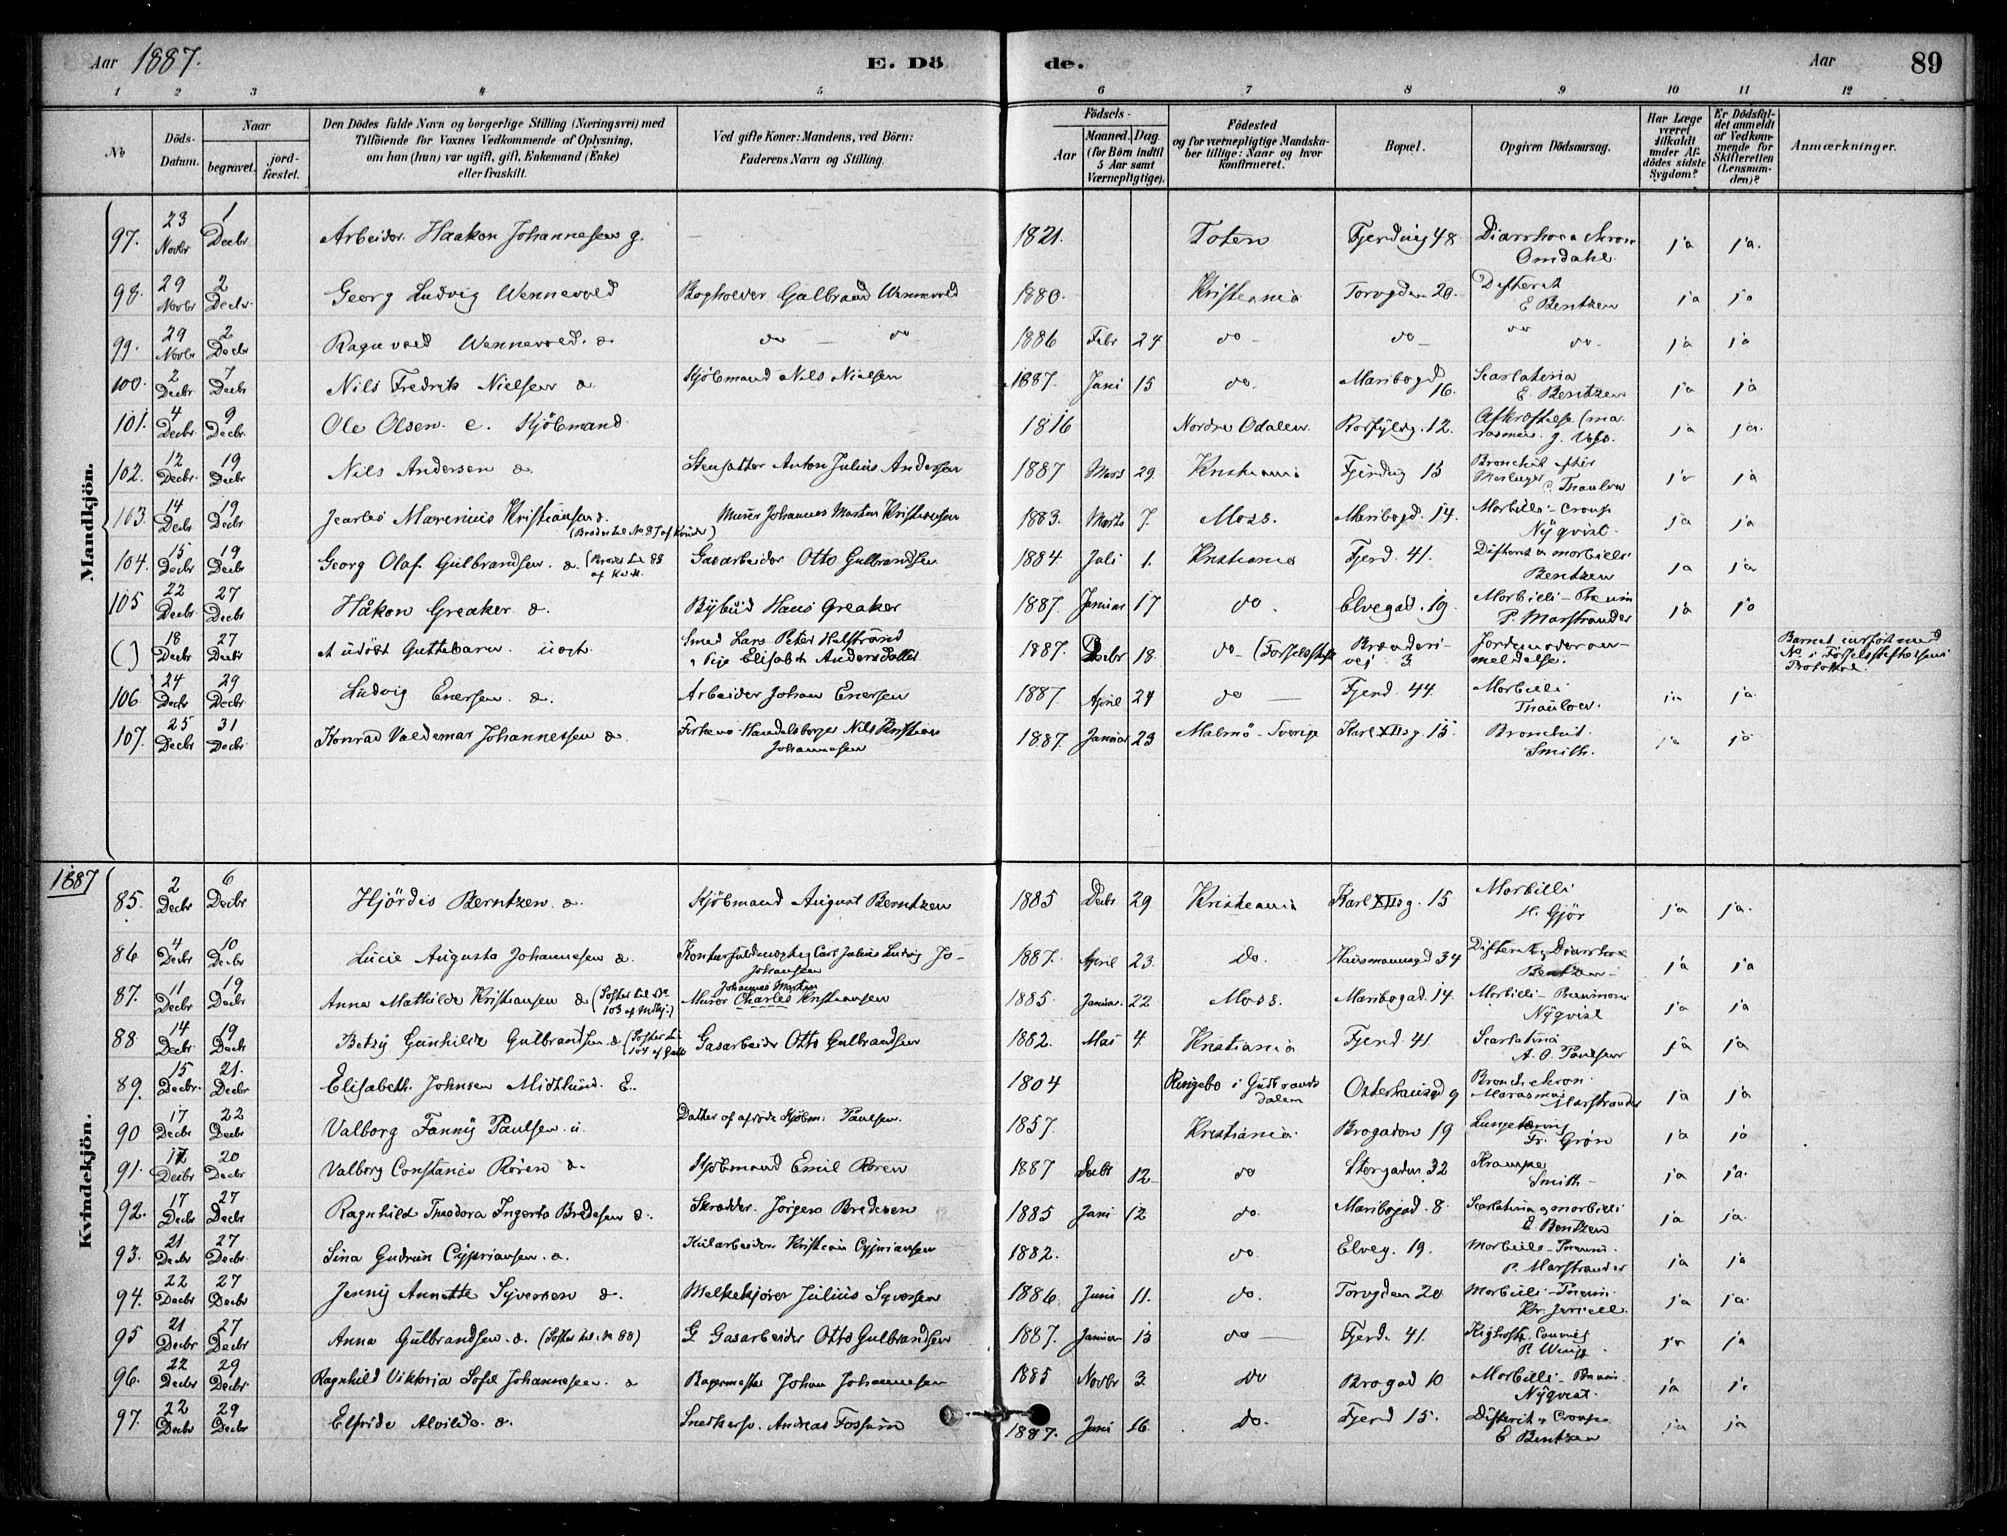 Aar 1887. E. Dö de. Aar 89
1 2 3 4 5 6 7 8 9 10 11 12
No
Döds-Datum.
Naar
begravet.
jord-fæstet.
Den Dödes fulde Navn og borgerlige Stilling (Næringsvei) med
Tilföiende for Voxnes Vedkommende af Oplysning,
om han (hun) var ugift, gift, Enkemand (Enke)
eller fraskilt.
Ved gifte Koner: Mandens, ved Börn:
Faderens Navn og Stilling.
Födsels-
Aar
Maaned. Dag.
(for Börn indtil
5 Aar samt
Værnepligtige).
Födested
og for værnepligtige Mandska-
ber tillige: Naar og hvor
konfirmeret.
Bopæl.
Opgiven Dödsaarsag.
Har Læge
været
tilkaldt
under Af-
dödes sidste
Sygdom?
Er Dödsfal-
det anmeldt
af Vedkom-
mende for
Skifteretten
(Lensman-
den)?
Anmærkninger.
Mandkjön.
97. 23 Novbr 1 Decbr Arbeider Haakon Johannesen g. — 1821. Toten Fjerding 48 Diarrhoea chron Omdahl ja ja.
98. 29 Novbr 2 Decbr. Georg Ludvig Wennevold Bogholder Gulbrand Wennevold 1880. Kristiania Torvgaden 20. Difterit E Bentzen ja ja
99. 29 Novbr 2 Decbr Ragnvald Wennevold. do — do 1886 Febr 24 do - do — do do - ja ja
100. 2 Decbr. 7 Decbr Nils Fredrik Nielsen Kjöbmand Nils Nielsen 1887. Juni 15 do. Maribogd 16. Scarlatina E. Bentzen ja ja
101. 4 Decbr 9 Decbr. Ole Olsen. e. Kjöbmand 1816 Nordre Odalen 12. Afkræftelse (ma-rasmus. ja ja.
102. 12 Decbr. 19 Decbr. Nils Andersen Stensætter Anton Julius Andersen 1887 Mars 29. Kristiania Fjerding 15 Bronchit efter Mæslinger Thaulow ja ja
103. 14 Decbr 19 Decbr Marenius Kristiansen (Broder til No 87 af Kvindk) Murer Johannes Martin Kristiansen 1883. Marts 7. Moss. Maribogd. 14. Morbilli - Croup Nÿqvist. ja ja
104. 15 Decbr 19 Decbr Georg Olaf Gulbrandsen. (Broder til 88 af Kvk. Gasarbeider Otto Gulbrandsen 1884 Juli 1. Kristiania Fjerd. 41. Difterit & morbilli Bentzen ja ja
105 22 Decbr 27 Decbr Håkon Greaker. Bÿbud Hans Greaker 1887. Januar 17 do. Elvegad. 19. Morbilli - Pneum P. Marstrander ja ja
( ) 18 Decbr 27 Decbr et udöbt Guttebarn. uægt. Smed Lars Peter Halstrand Pige Elisabeth Andersdatter 1887. Decbr 18. do (Födselsstift Brænderi-vej 3 Jordemoderan-meldelse. Barnet indfört med No. i Födselsstiftelsens Protokol.
106. 24 Decbr 29 Decbr Ludvig Enersen. Arbeider Johan Enersen 1887 April 24 do — Fjerd. 44. Morbilli Thaulow. ja ja.
107. 25 Decbr 31 Decbr Konrad Valdemar Johannessen Nils Kristian Johannesen 1887. Januar 23 Malmö - Sverige Karl XIIsg. 15. Bronchit. Smith. ja ja
1887
Kvindekjön.
85. 2 Decbr 6 Decbr Hjördis Berntzen. Kjöbmand August Berntzen 1885 Decbr 29. Kristiania Karl XIIsg. 15 Morbilli H. Gjör ja ja.
86 4 Decbr 10 Decbr Lucie Augusta Johannesen Kontorfuldmægtig Carl Julius Ludvig Jo-Johansen 1887. April 23. do. Hausmannsgd 34 Difterit & Diarrhoe Bentzen - ja ja
87. 11 Decbr 19 Decbr Anna Mathilde Kristiansen (Soster til No 103 af Mdkj.) Murer Johannes Martin Charles Kristiansen 1885. Januar. 22 Moss. Maribogad. 14. Morbilli - Pneumoni Nÿqvist ja ja
88. 14 Decbr. 19 Decbr Betzÿ Gunhilde Gulbrandsen (Soster til 104 Gasarbeider Otto Gulbrandsen 1882. Mai 4. Kristiania Fjerd 41. Scarlatina A. O. Paulsen ja ja
89. 15 Decbr. 21. Decbr Elisabeth Johnsen Midtlund. E. 1804 Ringebo i Gudbrands dalem Osterhausgd 9 Bronch. chron. Marasmus Marstrander ja ja
90 17 Decbr 22 Decbr Valborg Fannÿ Paulsen. u. Datter af afdöde Kjöbm. Paulsen. 1857. Kristiania. Brogaden 19 Lungetæring Fr. Grön ja ja
91. 12 Decbr 20 Decbr Valborg Constance Roren Kjöbmand Emil Roren 1887 Decbr 12 do Storgaden 32 Krampe Smith - ja ja.
92. 17 Decbr 27 Decbr Ragnhild Theodora Ingerta Bredesen Skrædder. Jörgen Bredesen 1885 Juni 12 do. Maribogad. 8. Scarlatina & morbilli E Bentzen ja ja.
93. 21 Decbr 27 Decbr. Lina Gudrun Cypriansen. Kulearbeider Kristian Cypriansen 1882. do. Elveg. 19. Morbilli - Pneum. P. Marstrander ja ja
94. 22 Decbr 27 Decbr Jennÿ Annette Syversen Melkekjörer Julius Syversen 1886. Juni 11. do. Torvgaden 20 Morbilli - Pneum. ja ja.
95 21 Decbr 27 Decbr Anna Gulbrandsen. (Soster til N 88) G. Gasarbeider Otto Gulbrandsen 1887. Januar 15 do — Fjerd. 41. Kighoste, ja ja
96. 22 Decbr 29 Decbr. Ragnhild Viktoria Sofie Johannesen. Bagermester Johan Johannesen 1885 Novbr 3. do Brogad 10 Morbilli - Pneum. Nÿqvist. ja ja
97. 22 Decbr 29 Decbr Elfride Alvilde. Snedkersv. Andreas Fossum 1887. Juni 16. do. Fjerd 15. Difterit & Croup. E Bentzen ja ja